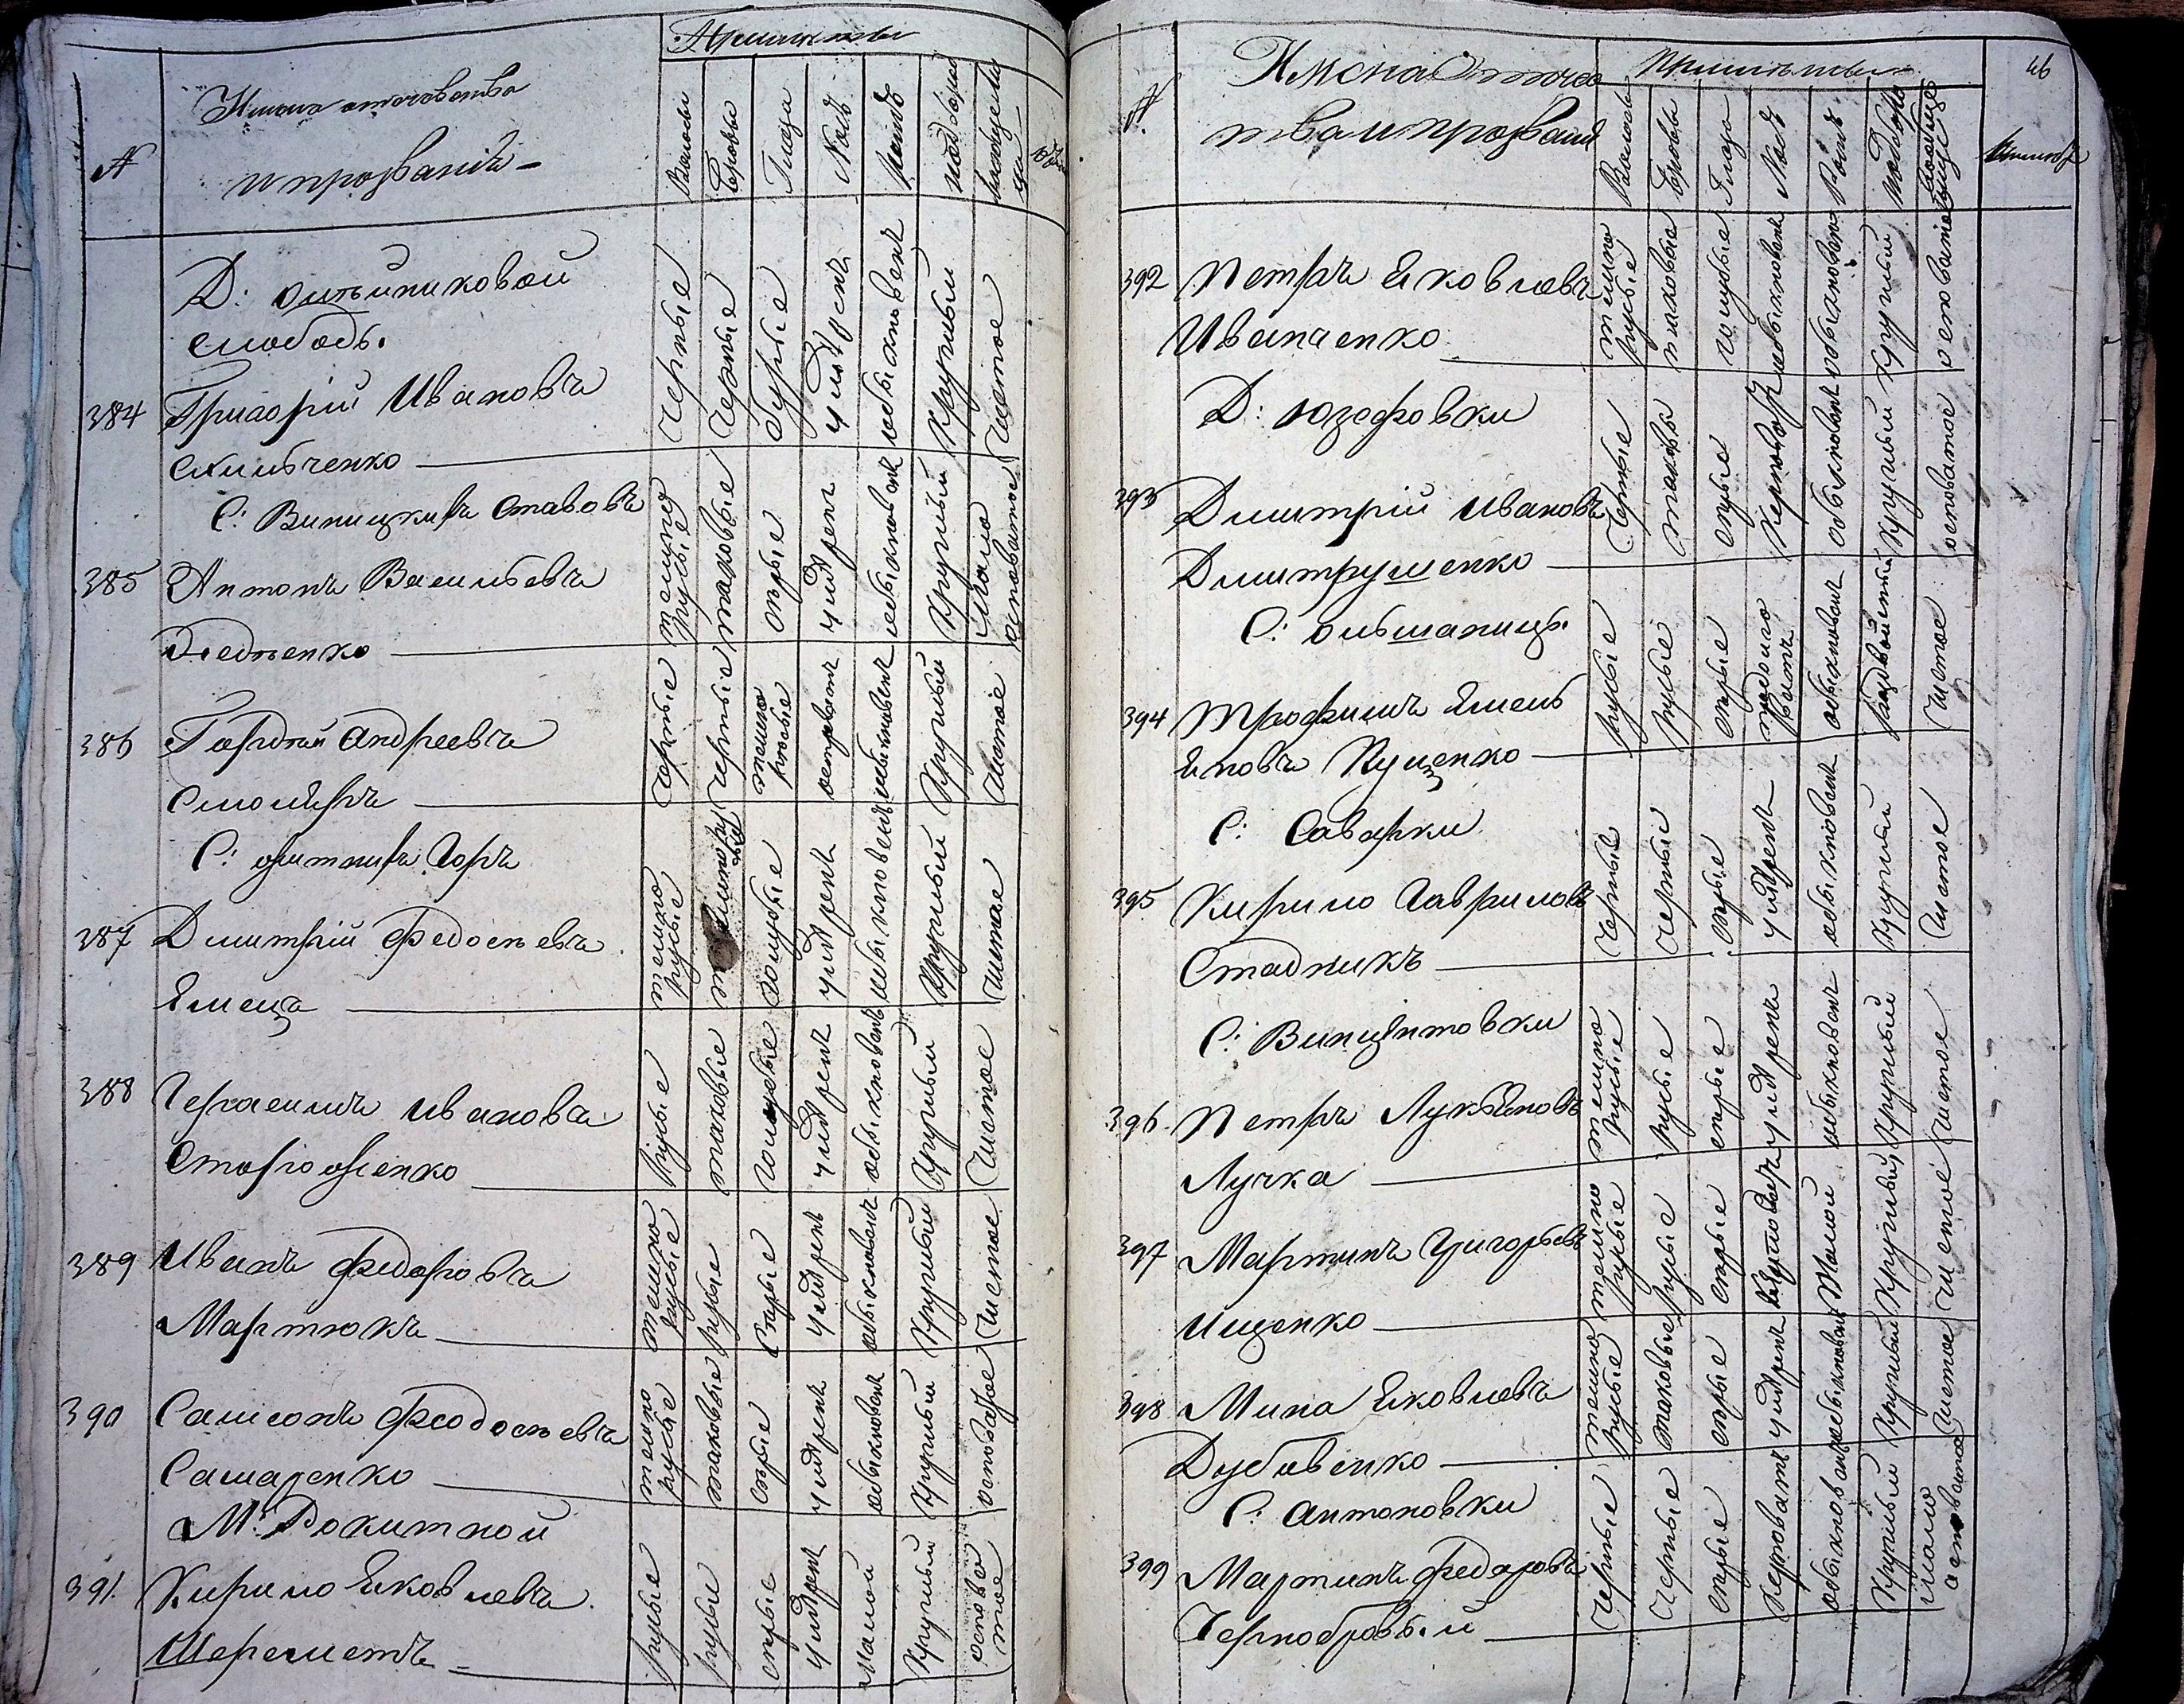 Приметы
№
Имена отечества
и прозвание
Волосы
Брови
Глаза
Носъ
Ротъ
подбород
Д: Ольшаниковой
слободы.
384 Григорій Ивановъ
черные
черные
бурые
обыкновен
Круглый
Чистое
С: Виницкихъ Ставовъ
385 Антонъ Васильевъ
темно
русые
таковые
серые
умерен
обыкновен
Круглый
мало
осповатое
386 Гордей Андреевъ
Смоляръ
черные
черные
темно
обыкновен
Круглый
Чистое
С: Житныхъ Горъ
387 Дмитрій Федосеевъ
Ямецъ
темно
русые
голубые
умерен
обыкновен
Круглый
чистое
388 Герасимъ Ивановъ
Стороженко
русые
таковые
голубые
умерен
обыкновен
Круглый
Чистое
389 Иванъ Федоровъ
Мартюкъ
темно
русые
русые
серые
умерен
обыкновен
Круглый
Чистое
390 Самсонъ Феодосеевъ
Самаренко
темно
русые
таковые
серые
умерен
обыкновен
Круглый
осповатое
М: Рокитной
391. Кирило Яковлевъ.
Шереметъ
русые
русые
серые
умерен
Малой
Круглый
оспова
тое
46
№
Имена Отечес
тва и прозвание
Приметы
Волосы
Брови
Глаза
Носъ
Ротъ
подборо
392 Петръ Яковлевъ
Иванченко
темно
русые
таковые
голубые
обыкновен
обыкновен
Круглый
осповатое
Д: Юзефовки
393 Дмитрій Ивановъ
Дмитрушенко
черные
таковые
серые
обыкновен
Круглый
осповатое
С: Ольшаницы.
394 Трофимъ Емель
яновъ Куценко
русые
русые
серые
обыкновен
Чистое
С: Саварки
395 Кирило Гавриловъ
Стадникъ
черные
черные
серые
умерен
обыкновен
Круглый
Чистое
С: Винцентовки
396 Петръ Лукьяновъ
Лучка
темно
русые
русые
серые
умерен
обыкновен
Круглый
Чистое
397 Мартинъ Григорьевъ
Ищенко
темно
русые
русые
серые
Малой
Круглый
чистое
398 Мина Яковлевъ
Дубовенко
темно
русые
таковые
серые
умерен
обыкновен
Круглый
Чистое
С: Антоновки
399 Мартинъ Федоровъ
Чернобровый
Черные
Черные
серые
керповатъ
обыкновен
Круглый
мало
осповатое